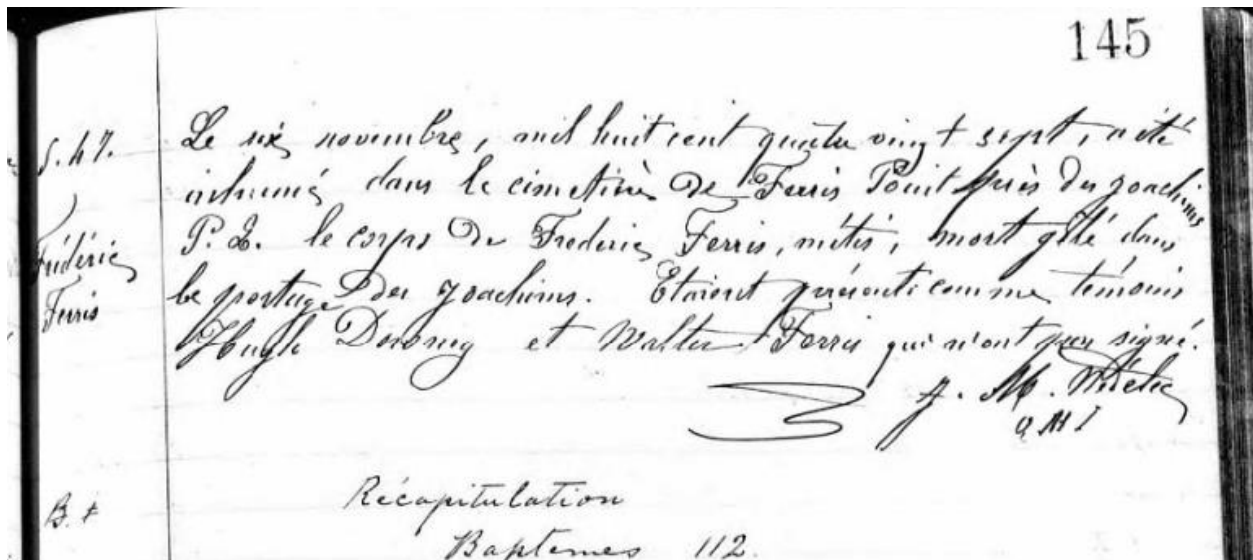 145
S. 47.
Frédéric
Ferris
Le six novembre, mil huit cent quatre vingt sept, a été
inhumé dans le cimetière de Ferris Point près des Joachims
P. Q. le corps de Frederic Ferris, métis, mort gelé dans
le portage des Joachims. Etaient présents comme témoins
Hugh et Walter Ferris qui n'ont pas signé.
J. M.
O M I
B. #
Récapitulation
Baptemes 112.